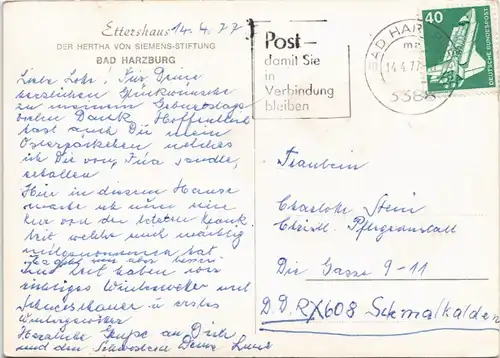 Ettershaus 14.4.77
DER HERTHA VON SIEMENS-STIFTUNG
BAD HARZBURG
Liebe Lotte! Für Deine
herzlichen Glückwünsche
zu meinem Geburtstage
vielen Dank. Hoffentlich
hast auch Du mein
Osterpäckchen welches
ich Dir von sandte,
erhalten
Hier in diesem Hause
mache ich nun eine
Kur von der letzten Krank
heit welche mich mächtig
mitgenommen hat.
Zur Zeit haben wir
richtiges Winterwetter mit
Schneeschauer u erstes
Wintergewitter
Herzliche Grüße an Dich
und den Schwestern Deine
Post–
damit Sie
in
Verbindung
bleiben
BAD HAR
14.4.77
3388
40
DEUTSCHE BUNDESPOST
Fräulein
Charlotte Stein
Christl. Pflegeanstalt
Die Gasse 9-11
D.D.R X608 Schmalkalden